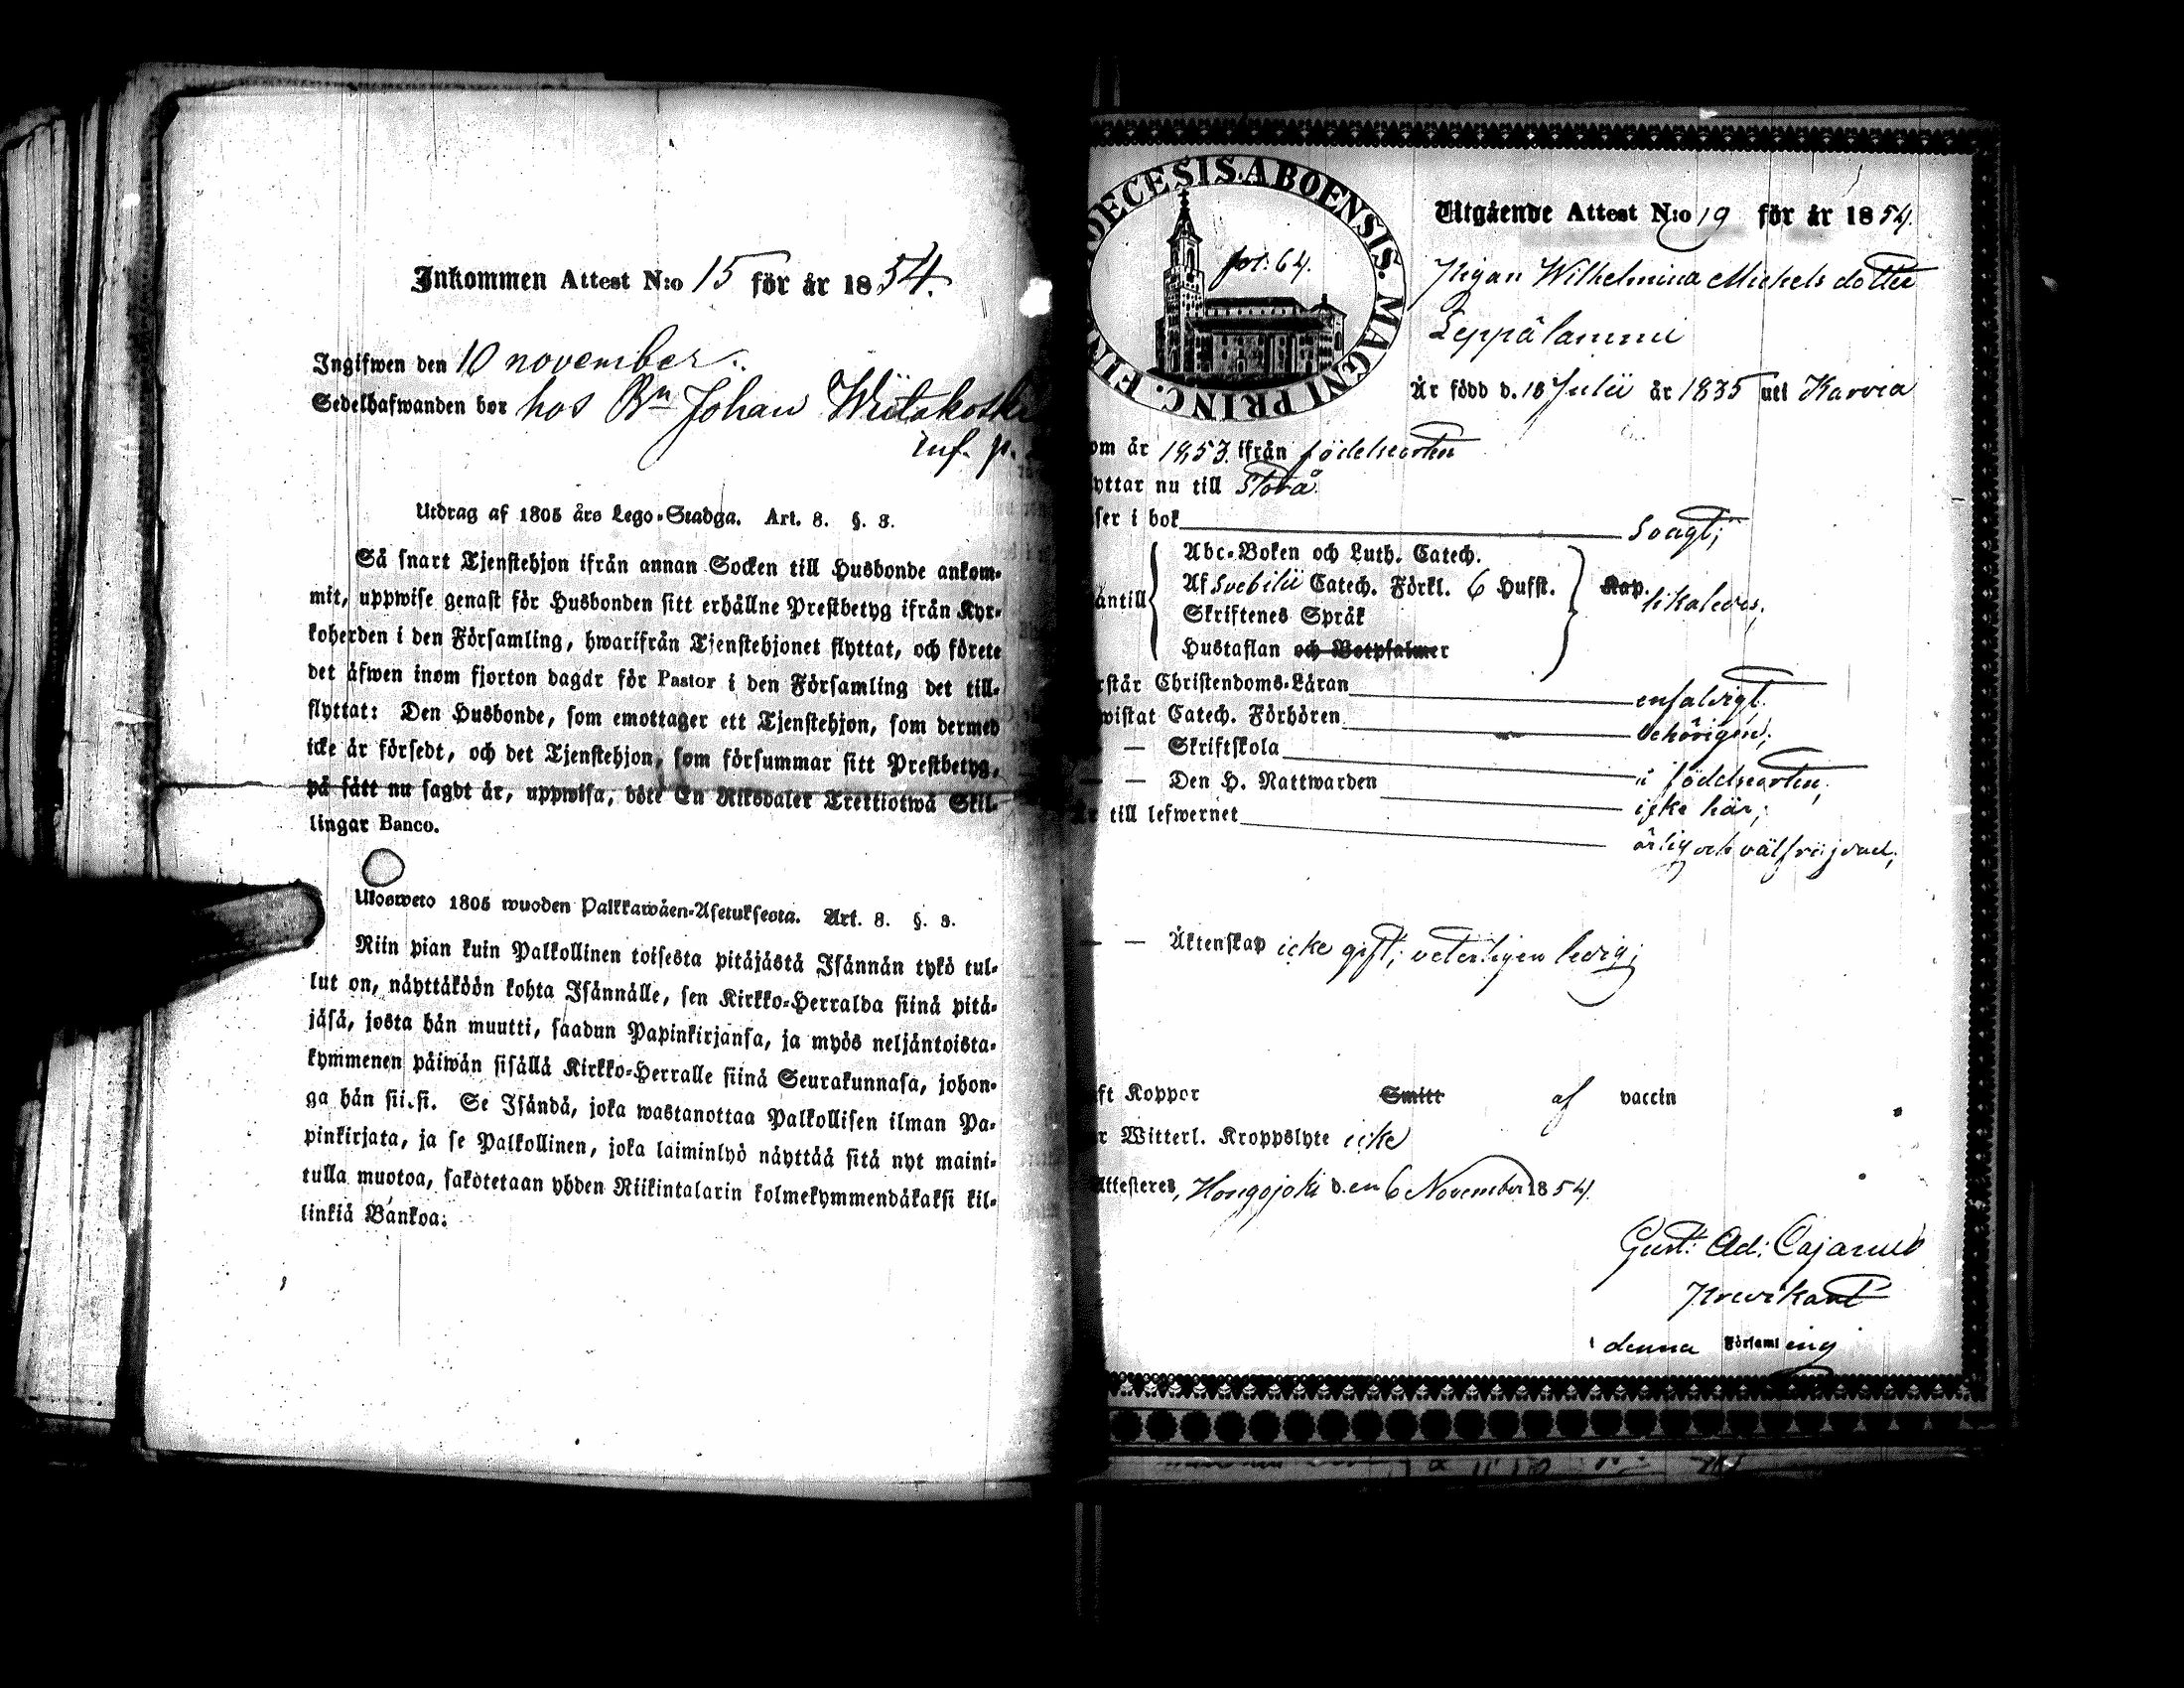 Inkommen Attest N:o 15 för år 1854.
Ingifwen den 10 november.
Sedelhafwanden bor hos Bn Johan Wiitakoski
inf. p.
Utdrag af 1805 års Lego-Stadga. Art. 8. §. 3.
Så snart Tjenstehjon ifrån annan Socken till Husbonde ankom-
mit, uppwise genast för Husbonden sitt erhållne Prestbetyg ifrån Kyr-
koherden i den Församling, hwarifrån Tjenstehjonet flyttat, och förete
det äfwen inom fjorton dagar för Pastor i den Församling det till-
flyttat: Den Husbonde, som emottager ett Tjenstehjon, som dermed
icke är försedt, och det Tjenstehjon, som försummar sitt Prestbetyg,
på sätt nu sagdt är, uppwisa, böte En Riksdaler Trettiotwå Skil-
lingar Banco.
Ulosweto 1805 wuoden Palkkawäen-Asetuksesta. Art. 8. §. 3.
Niin pian kuin Palkollinen toisesta pitäjästä Isännän tykö tul-
lut on, näyttäköön kohta Isännälle, sen Kirkko-Herralda siinä pitä-
jäsä, josta hän muutti, saadun Papinkirjansa, ja myös neljäntoista-
kymmenen päiwän sisällä Kirkko-Herralle siinä Seurakunnasa, johon-
ga hän sii.si. Se Isändä, joka wastanottaa Palkollisen ilman Pa-
pinkirjata, ja se Palkollinen, joka laiminlyö näyttää sitä nyt maini-
tulla muotoa, sakotetaan yhden Riikintalarin kolmekymmendäkaksi kil-
linkiä Bankoa.
DECESIS. ABOENSIS. MAGNI PRINC. FIN
fol. 64.
Utgående Attest N:o 19 för år 1854.
Pigan Wilhelmina Michels dotter
Leppälammi
Är född d. 18 Julii år 1835 uti Karvia
om år 1853. ifrån födelseorten
yttar nu till Storå.
ser i bok svagt;
Abc-Boken och Luth. Catech.
Af Svebilii Catech. Förkl. 6 Hufst. Kap.
antill likaledes;
Skriftenes Språk
Hustaflan och Botpsalmer
rstår Christendoms-Läran enfaldigt.
wistat Catech. Förhören behörigen;
— Skriftskola i födelseorten;
— — Den H. Nattwarden icke här;
Är till lefwernet ärlig och välfräjdad;
— — Äktenskap icke gift; veterligen ledig;
ft Koppor Smitt af vaccin
r Witterl. Kroppslyte icke
Attesteres, Hongojoki d.en 6 November 1854.
Gust: Ad: Cajanus
Predikant
i denna Församling